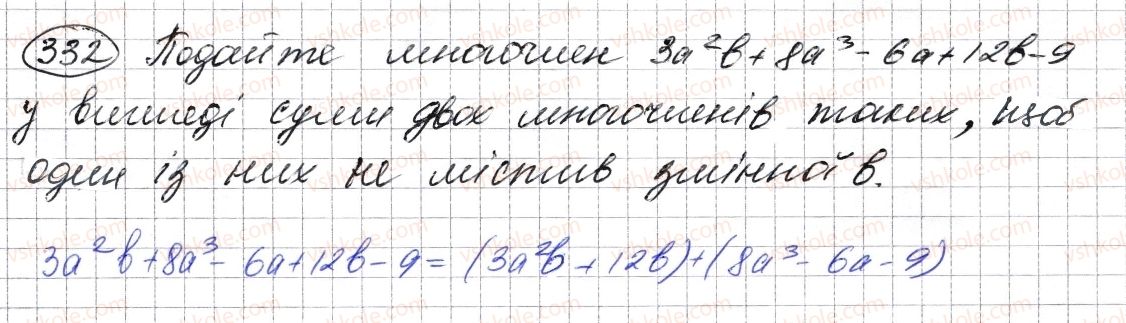 332 Подайте многочлен 3a²b + 8a³ - 6a + 12b - 9
у вигляді суми двох многочленів таких, щоб
один із них не містив змінної b.
3a²b + 8a³ - 6a + 12b - 9 = (3a²b + 12b) + (8a³ - 6a - 9)